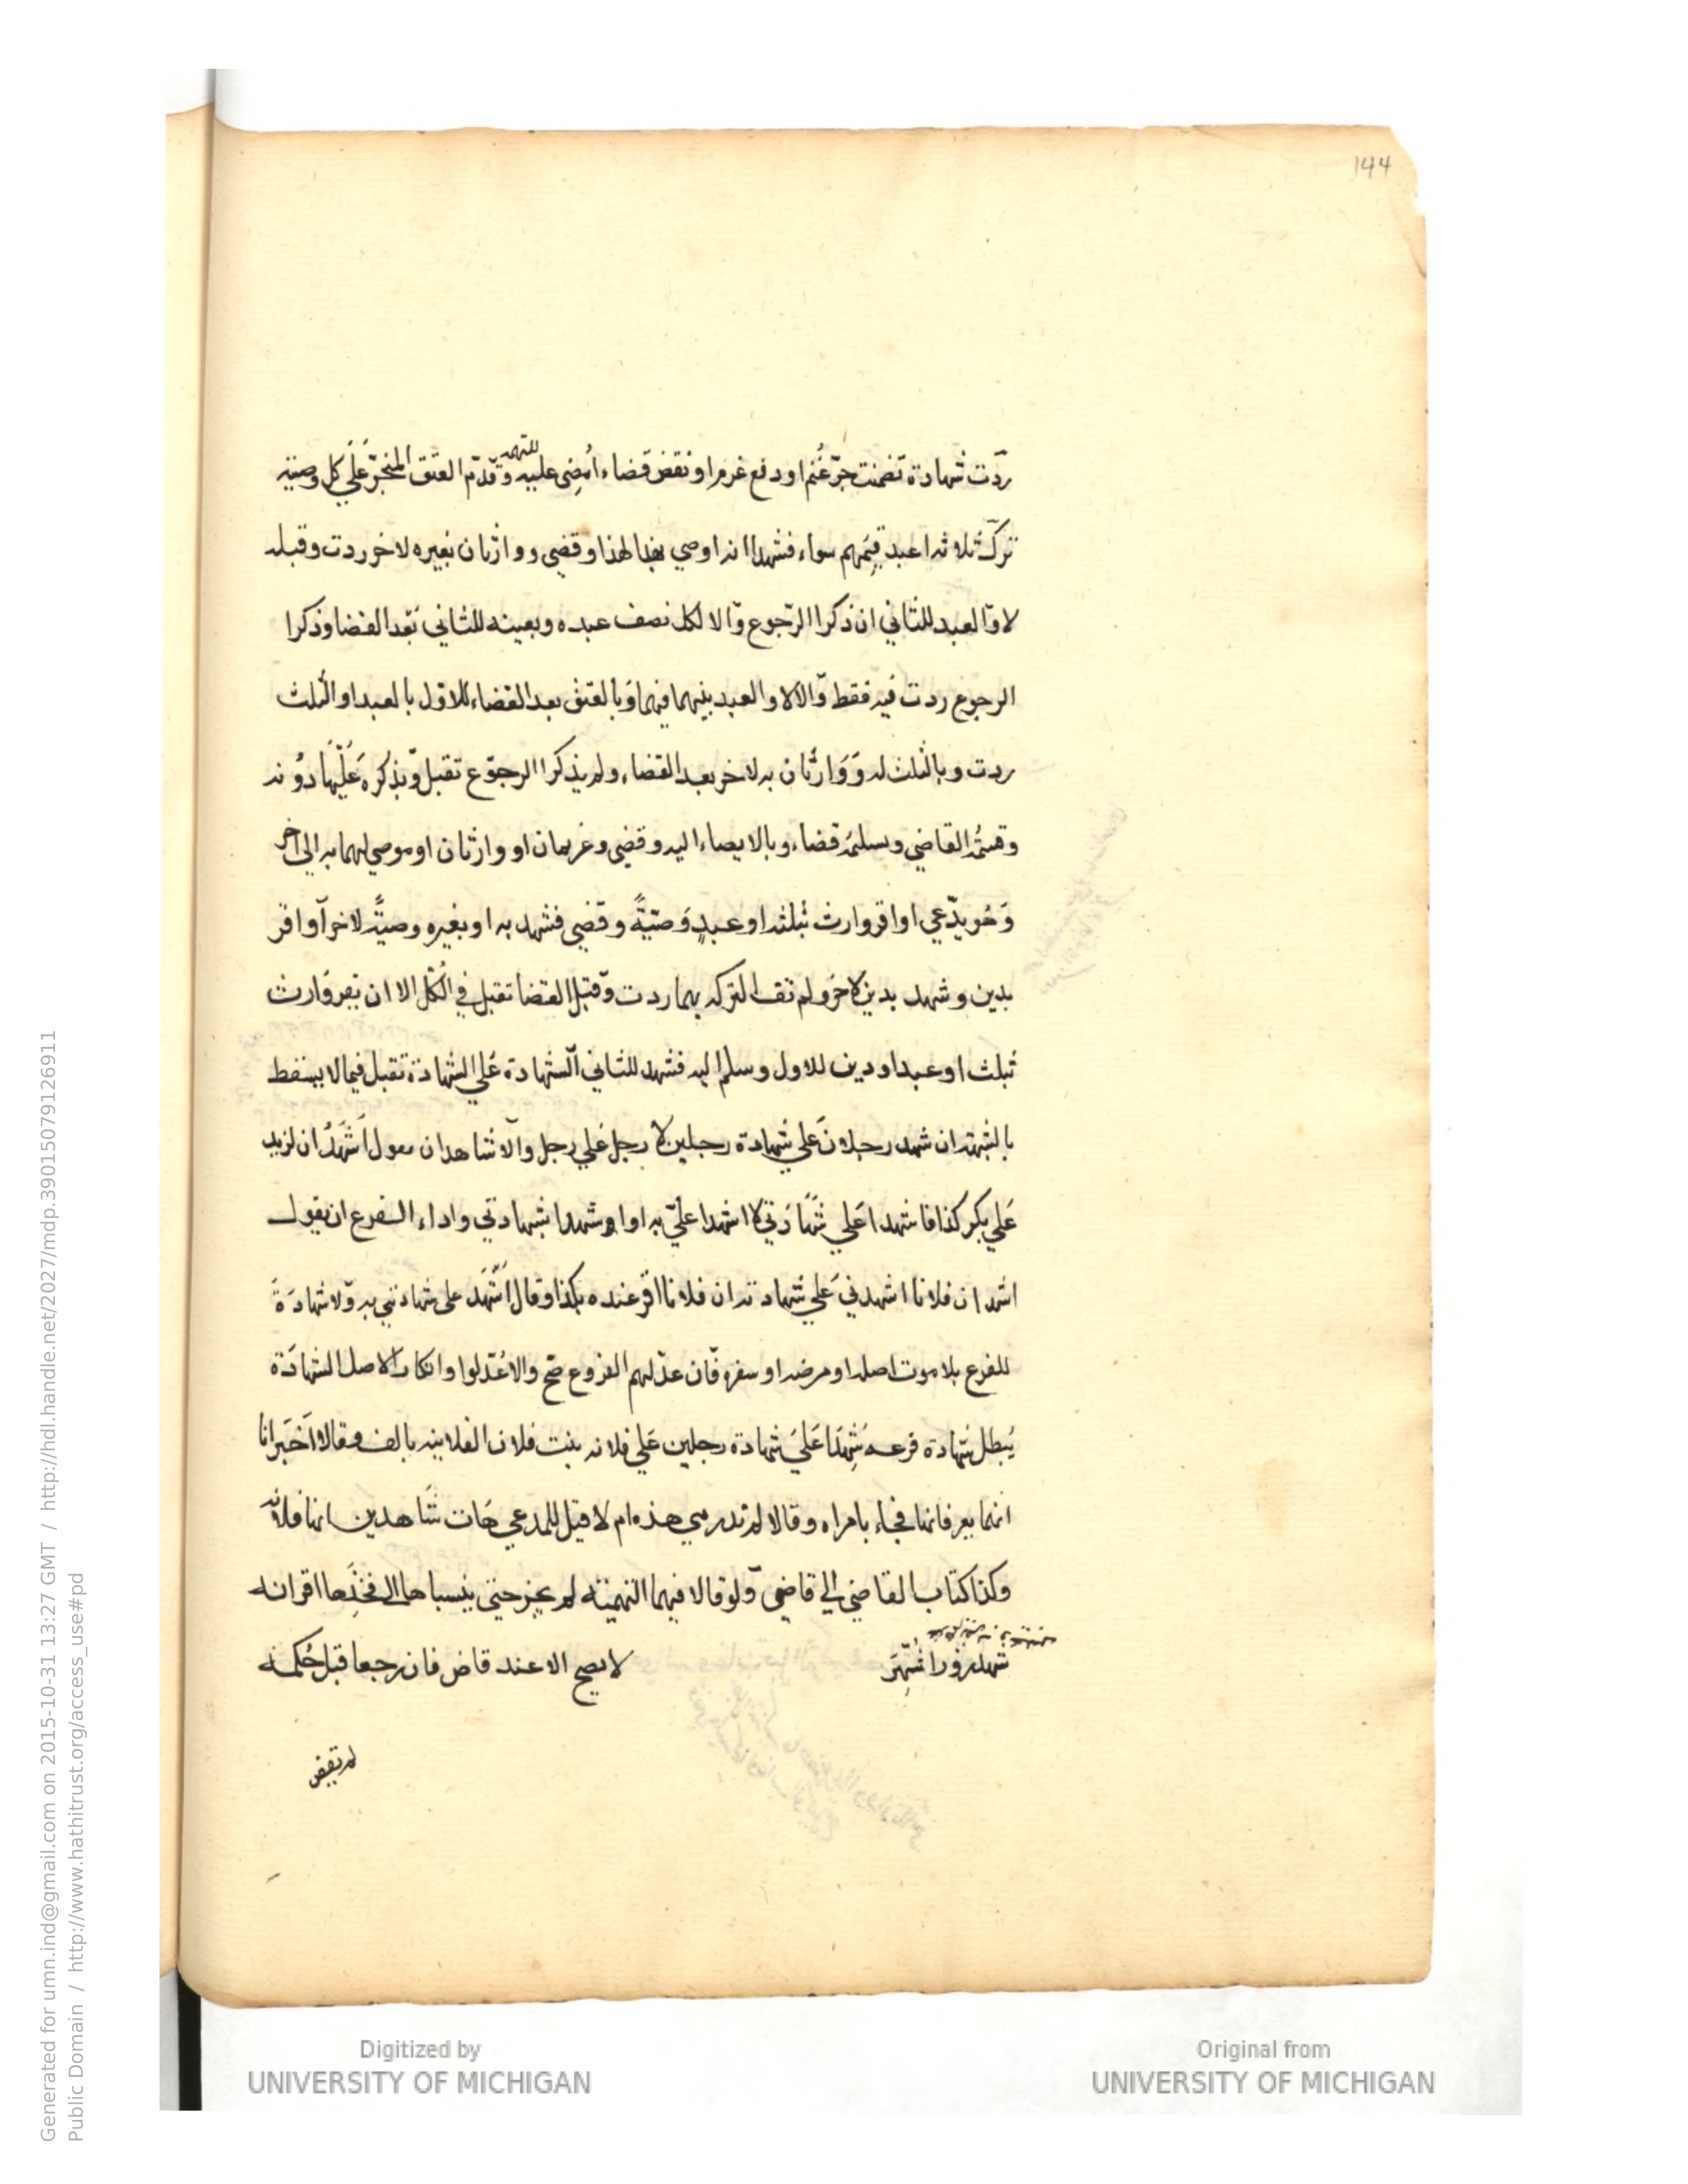 144
ردّت شهادة تضمنت جرّ غُنم او دفع غرم او نقض قضاء اُمضى عليه للتهمه وقدّم العتق المنجّز على كل وصيته
ترك ثلاثه اعبد قيمَهم سواء فشهدا انه اوصي بهذا لهذا وقضي ووارثان بغيره لاخر ردت وقبله
لا والعبد للثاني ان ذكرا الرّجوع والا لكل نصف عبده وبعينه للثاني بَعد القضا وذكرا
الرجوع ردت فيه فقط والا لا والعبد بينهما فيهما وبالعتق بعد القضاء للاوّل بالعبد او الثلث
ردت وبالثلث له ووارثان به لاخر بعد القضاء ولم يذكرا الرجوع تقبل وبذكره عليهما دونه
وقسمُه القاضي وسلمُه قضاء وبالايصاء اليه وقضي وغريمان او وارثان او موصي لهما به الي اخر
وهُو يدّعي او اقر وارث بثلثه او عبدٍ وصيّةً وقضي فشهد به او بغيره وصيّةً لاخر او اقر
بدين وشهد بدين لاخر ولم تف التركه بهما ردت وقبل القضا تقبل في الكل الا ان يقر وارث
بثلث او عبد او دين للاول وسلم اليه فشهد للثاني الشهادة علي الشهادة تقبل فيما لا يسقط
بالشبهه ان شهد رجلان علي شهادة رجلين لا رجل علي رجل والاشاهدان يقول اَشهدُ ان لزيد
علي بكر كذا فاشهدا علي شهادتي لا اشهدا عليّ به او اوشهدا بشهادتي واداء الفرع ان يقول
اشهد ان فلانا اشهدني علي شهادته ان فلانا اقر عنده بكذا وقال اشهد على شهادتي به ولا شهادة
للفرع بلا موت اصله او مرضه او سفره فان عدّلهم الفروع صّح والا عُدّلوا وانكار الاصل الشهادة
يُبطل شهادة فرعه شهِدَا علي شهادة رجلين علي فلانه بنت فلان الفلانيه بالف وقالا اخبرانا
انهما يعرفانها فجاء بامراه وقالا لم ندر هي هذه ام لا قيل للمدعي هات شاهدين انها فلانه
وكذا كتاب القاضي الي قاضي ولو قالا فيهما التميميّة لم يجز حتي ينسباها الى فخذها اقر انه
شهد زورا شُهِّر لا يصح الا عند قاض فان رجعا قبل حُكمه
لم يقض